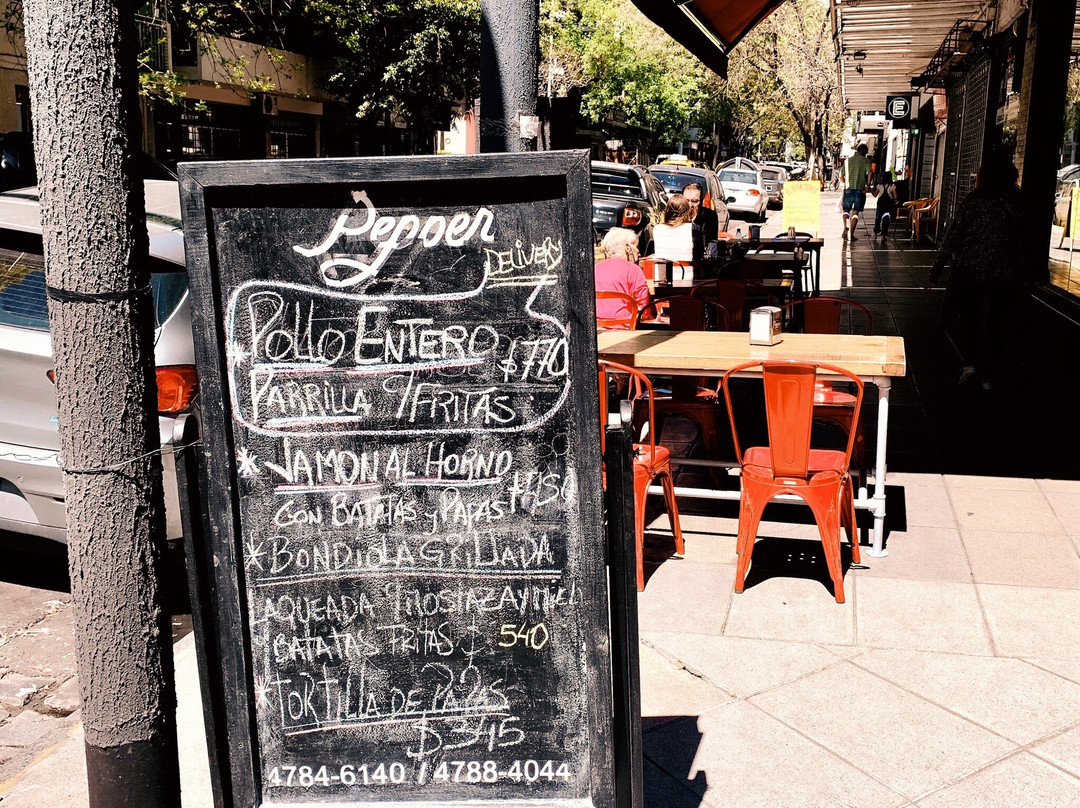 Pepper
DELIVERY
POLLO ENTERO
$770
PARRILLA C/FRITAS
* JAMON AL HORNO
CON BATATAS y PAPAS
* BONDIOLA GRILLADA
LAQUEADA C/MOSTAZA Y MIEL
BATATAS FRITAS $ 540
* TORTILLA DE PAPAS
$ 345
4784-6140 / 4788-4044
E